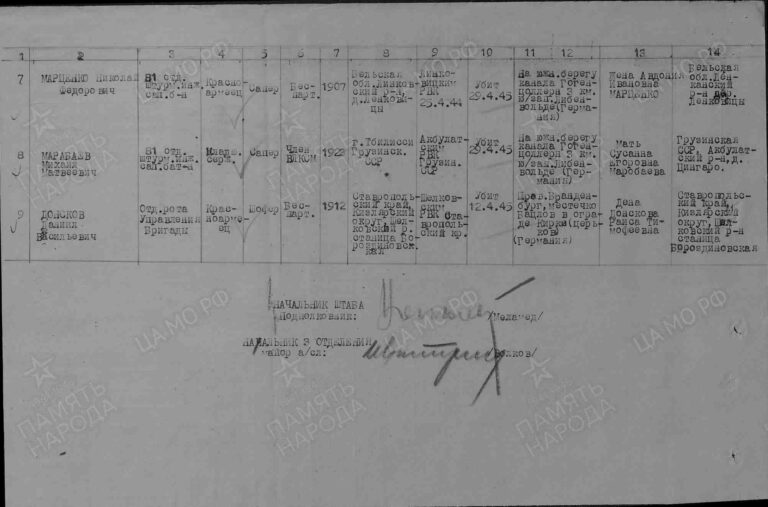 1 2 3 4 5 6 7 8 9 10 11 12 13 14
7 МАРЦЕНКО Николай Федорович
81 отд. штурм.инж. сап.б-н
Красно-
армеец
Сапер
Бес-
парт.
1907
Вельская
обл.
ский р-н,
д.Ленкови-
цы
РВК
25.4.44
Убит
29.4.45
На южн.берегу
канала Гоген-
цоллерн 3 км.
ю/зап.Либен-
вольде(Герма-
ния)
Жена Авдония
Ивановна
МАРЦЕНКО
р-н дер.
Ленковицы
8 МАРАБАЕВ
Михаил
Матвеевич
81 отд.
штурм.инж.
сап.бат-н
Младш.
серж.
Сапер
Член
ВЛКСМ
1922
г.Тбилисси
Грузинск.
ССР
Акбулат-
ским
РВК
Грузин.
ССР
Убит
29.4.45
На южн.берегу
канала Гоген-
цоллерн 3 км.
ю/зап.Либен-
вольде (Гер-
мания)
Мать
Сусанна
агоровна
Маробаева
Грузинская
ССР, Акбулат-
ский р-н,д.
Цингаро.
9 ДОНСКОВ
Даниил
Васильевич
Отд.рота
Управления
Бригады
Крас-
ноарме-
ец
Шофер
Бес-
парт.
1912
Ставрополь-
ский край,
Кизлярский
округ,Шел-
ковский р.
станица Бо-
роздиновс-
кая
Шелков-
ским
РВК Ста-
врополь-
ский кр.
Убит
12.4.45
Пров.Бранден-
бург,местечко
Вацлов в огра-
де Кирки(церь-
ков)
(Германия)
Жена
Донскова
Раиса Ти-
мофеевна
Ставрополь-
ский край,
Кизлярский
округ, Шел-
ковский р-н
станица
Бороздиновская
НАЧАЛЬНИК ШТАБА
Подполковник: /Меламед/
НАЧАЛЬНИК 3 ОТДЕЛЕНИЯ
майор а/сл:
ЦА МО РФ
ПАМЯТЬ
НАРОДА